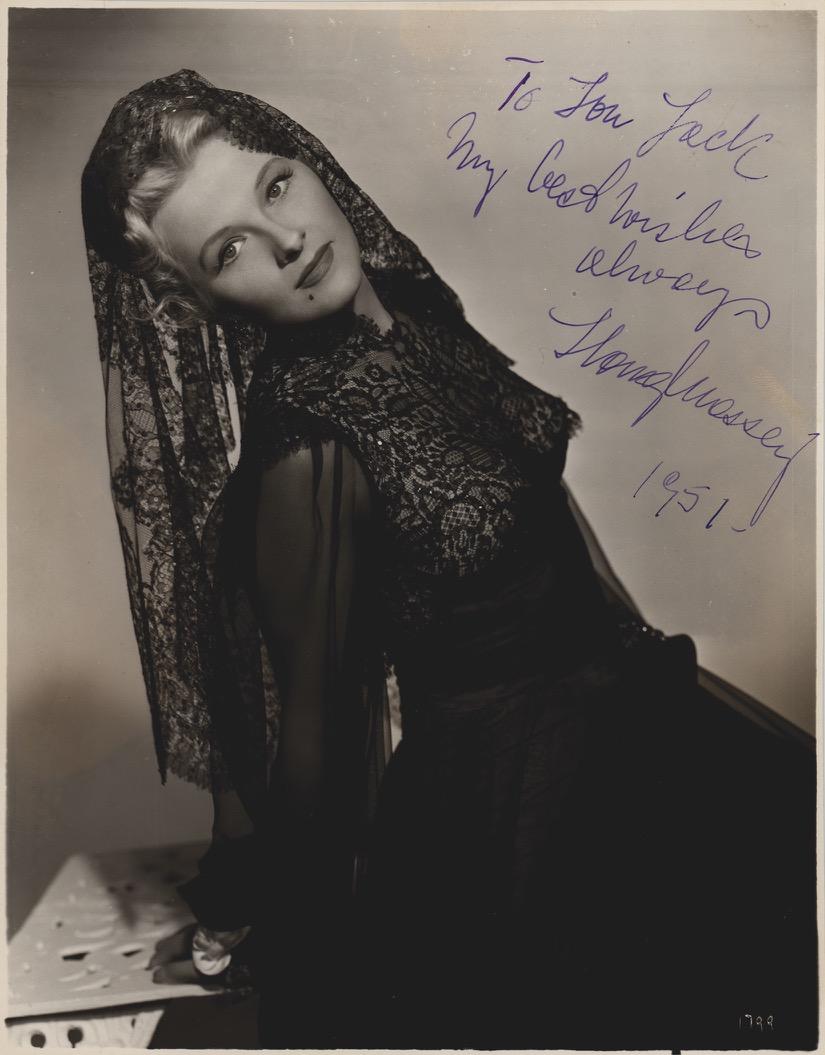 To Lou Jack
My best wishes
always
Ilona Massey
1951-
1799